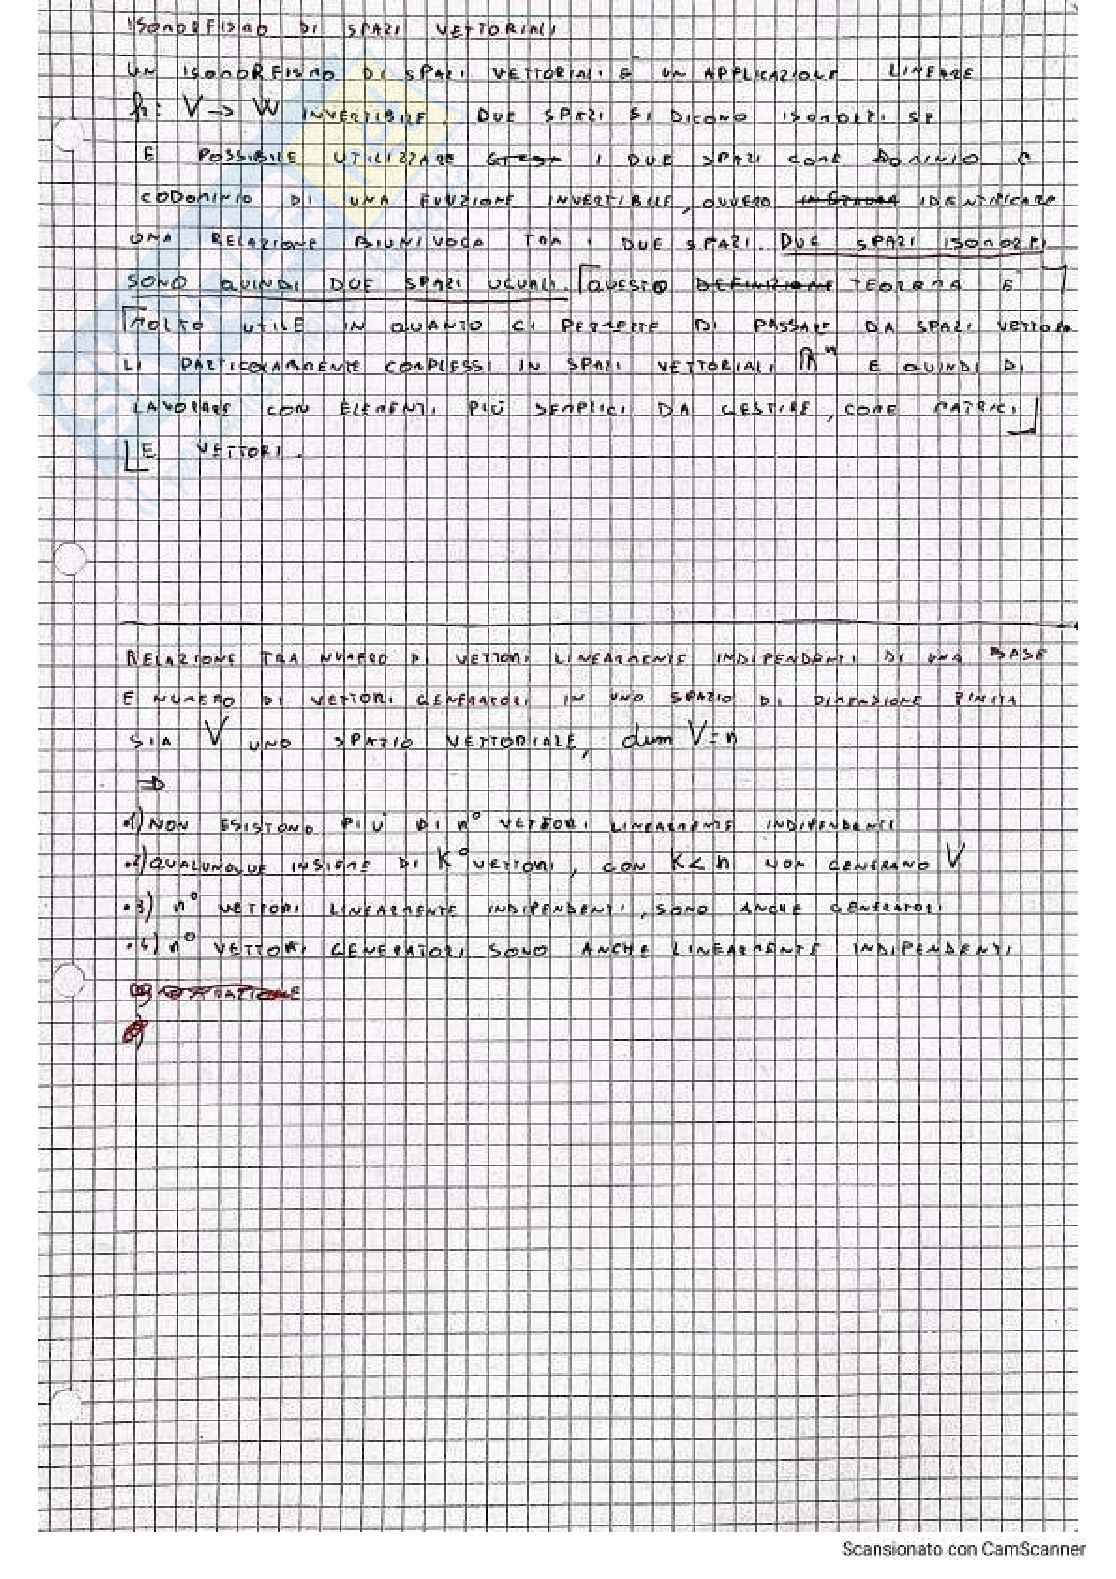 ISOMORFISMO DI SPAZI VETTORIALI
UN ISOMORFISMO DI SPAZI VETTORIALI È UN APPLICAZIONE LINEARE
h: V → W INVERTIBILE. DUE SPAZI SI DICONO ISOMORFI SE
E POSSIBILE UTILIZZARE I DUE SPAZI COME DOMINIO E
CODOMINIO DI UNA FUNZIONE INVERTIBILE, OVVERO IDENTIFICARE
UNA RELAZIONE BIUNIVOCA TRA I DUE SPAZI. DUE SPAZI ISOMORFI
SONO QUINDI DUE SPAZI UGUALI. [QUESTO DEFINIZIONE TEOREMA È
MOLTO UTILE IN QUANTO CI PERMETTE DI PASSARE DA SPAZI VETTORIA
LI PARTICOLARMENTE COMPLESSI IN SPAZI VETTORIALI ℝⁿ E QUINDI DI
LAVORARE CON ELEMENTI PIÙ SEMPLICI DA GESTIRE, COME MATRICI
E VETTORI.]
RELAZIONE TRA NUMERO DI VETTORI LINEARMENTE INDIPENDENTI DI UNA BASE
E NUMERO DI VETTORI GENERATORI IN UNO SPAZIO DI DIMENSIONE FINITA
SIA V UNO SPAZIO VETTORIALE, dim V = n
⇒
•1) NON ESISTONO PIÙ DI n° VETTORI LINEARMENTE INDIPENDENTI
•2) QUALUNQUE INSIEME DI K° VETTORI, CON K < n NON GENERANO V
•3) n° VETTORI LINEARMENTE INDIPENDENTI, SONO ANCHE GENERATORI
•4) n° VETTORI GENERATORI SONO ANCHE LINEARMENTE INDIPENDENTI
Scansionato con CamScanner